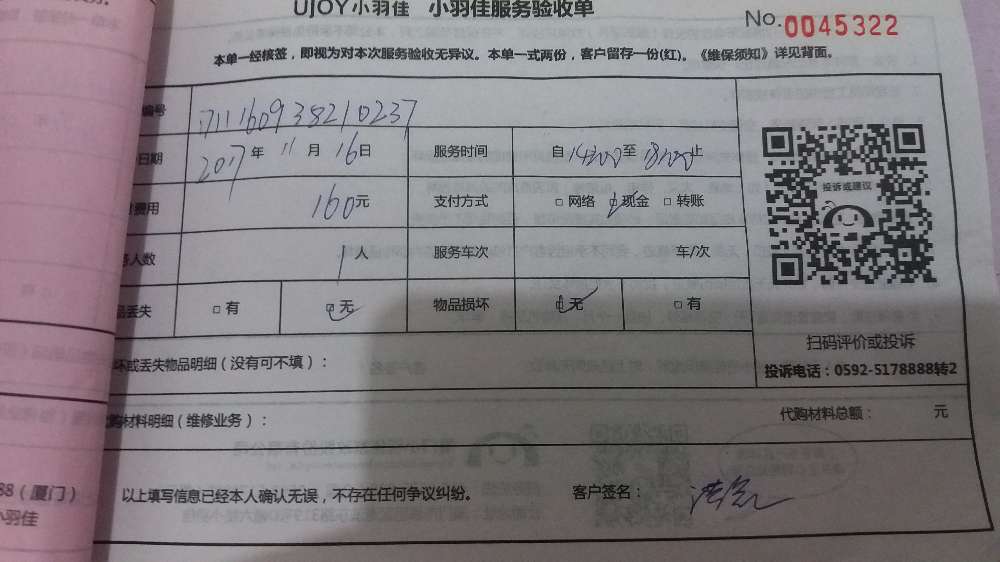 UJOY小羽佳 小羽佳服务验收单
No.0045322
本单一经核签，即视为对本次服务验收无异议。本单一式两份，客户留存一份(红)。《维保须知》详见背面。
编号 1711160938210237
日期 2017年11月16日 服务时间 自14:00至18:00止
费用 160元 支付方式 □网络 □现金 □转账
人数 1人 服务车次 车/次
品丢失 □有 □无 物品损坏 □无 □有
投诉或建议
扫码评价或投诉
投诉电话：0592-5178888转2
坏或丢失物品明细（没有可不填）：
代购材料明细（维修业务）： 代购材料总额： 元
88（厦门）
小羽佳
以上填写信息已经本人确认无误，不存在任何争议纠纷。 客户签名：